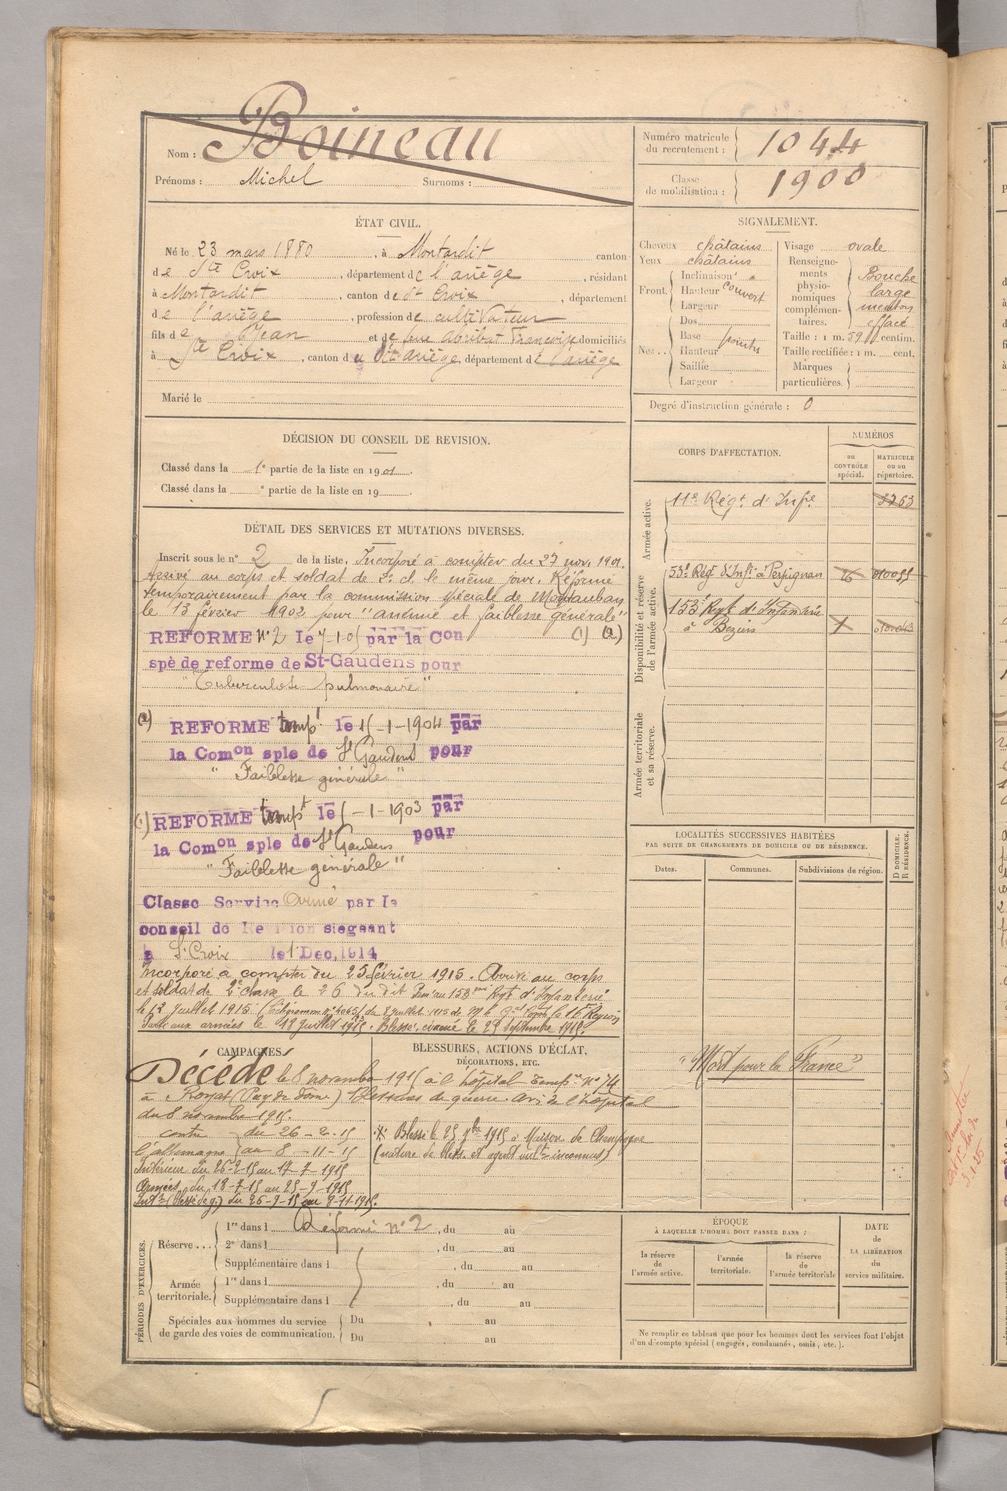 Nom : Boineau
Prénoms : Michel Surnoms :
Numéro matricule du recrutement : 1044
Classe de mobilisation : 1900
ÉTAT CIVIL.
Né le 23 mars 1880, à Montardit canton
de Ste Croix, département de l'ariège, résidant
à Montardit, canton de Ste Croix, département
de l'ariège, profession de cultivateur
fils de Jean et de feue abribat Françoise domiciliés
à Ste Croix, canton du dit ariège, département de l'ariège
Marié le
SIGNALEMENT.
Cheveux châtains
Yeux châtains
Front. Inclinaison
Hauteur couvert
Largeur
Nez .. Dos
Base pointu
Hauteur
Saillie
Largeur
Visage ovale
Renseignements physionomiques complémentaires. Bouche large menton effacé
Taille : 1 m. 59 centim.
Taille rectifiée : 1 m. cent.
Marques particulières.
Degré d'instruction générale : 0
DÉCISION DU CONSEIL DE REVISION.
Classé dans la 1e partie de la liste en 1901.
Classé dans la e partie de la liste en 19
DÉTAIL DES SERVICES ET MUTATIONS DIVERSES.
Inscrit sous le n° 2 de la liste. Incorporé à compter du 27 nov. 1901.
Arrivé au corps et soldat de 2e cl. le même jour. Réformé
temporairement par la commission spéciale de Montauban
le 13 février 1902 pour "anémie et faiblesse générale" (1) (2)
REFORME N° 2 le 7-1-05 par la Con
spè de reforme de St-Gaudens pour
"Tuberculose pulmonaire"
(2) REFORME tempt le 15-1-1904 par
la Comon sple de St Gaudens pour
"Faiblesse générale"
(1) REFORME tempt le 5-1-1903 par
la Comon sple de St Gaudens pour
"Faiblesse générale"
Classe Service armé par le
conseil de Revision siegeant
a St Croix le 1 Dec. 1914
Incorporé à compter du 25 février 1915. Arrivé au corps
et soldat de 2e classe le 26 du dit. Passé au 153eme Régt d'Infanterie
le 12 juillet 1915.
Parti aux armées le 19 juillet 1915. Blessé, évacué le 25 septembre 1915.
CORPS D'AFFECTATION.
NUMÉROS
DU CONTRÔLE spécial.
MATRICULE OU DU répertoire.
Armée active.
11e Régt d'Infie 5763
Disponibilité et réserve de l'armée active.
53e Régt d'Infie à Perpignan
153e Régt d'Infanterie
à Béziers
Armée territoriale et sa réserve.
LOCALITÉS SUCCESSIVES HABITÉES
PAR SUITE DE CHANGEMENTS DE DOMICILE OU DE RÉSIDENCE.
Dates. Communes. Subdivisions de région. D DOMICILE. R RÉSIDENCE.
"Mort pour la France"
CAMPAGNES
BLESSURES, ACTIONS D'ÉCLAT,
DÉCORATIONS, ETC.
Décédé le 8 novembre 1915 à l'hôpital Tempre N° 74
à Royat (Puy de Dôme) Blessures de guerre. avis de l'hôpital
du 8 novembre 1915.
contre du 26-2-15
l'allemagne au 8-11-15
Intérieur du 26-2-15 au 17-7-1915
Armées du 18-7-15 au 25-9-1915
Intr (blessé de g.) du 26-9-15 au 8-11-1915.
Blessé le 25 7bre 1915 à Maison de Champagne
(nature de bless. et agent vult inconnus)
PÉRIODES D'EXERCICES.
Réserve ... 1re dans l Réformé n° 2, du au
2e dans l , du au
Supplémentaire dans l , du au
Armée territoriale. 1re dans l , du au
Supplémentaire dans l , du au
Spéciales aux hommes du service de garde des voies de communication. Du au
Du au
ÉPOQUE
À LAQUELLE L'HOMME DOIT PASSER DANS :
la réserve de l'armée active.
l'armée territoriale.
la réserve de l'armée territoriale
DATE de LA LIBÉRATION du service militaire.
Ne remplir ce tableau que pour les hommes dont les services font l'objet
d'un décompte spécial (engagés, condamnés, omis, etc.).